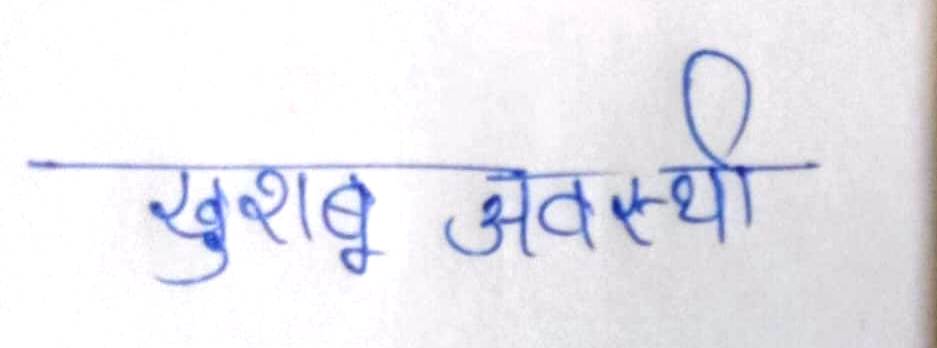 खुशबू अवस्थी